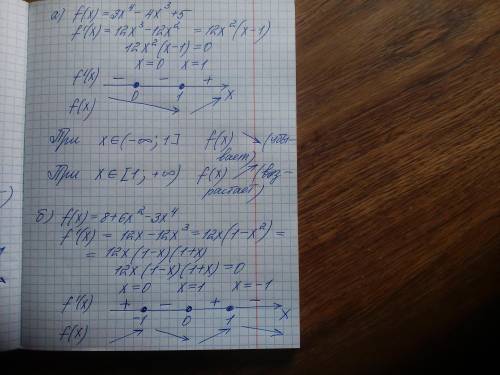 а) f(x) = 3x⁴ - 4x³ + 5
f'(x) = 12x³ - 12x² = 12x²(x-1)
12x²(x-1) = 0
x=0 x=1
f'(x) - - +
0 1 x
f(x)
При x∈(-∞; 1] f(x) ↘ (убы-
вает)
При x∈[1; +∞) f(x) ↗ (воз-
растает)
б) f(x) = 8+6x²-3x⁴
f'(x) = 12x - 12x³ = 12x(1-x²) =
= 12x(1-x)(1+x)
12x(1-x)(1+x) = 0
x=0 x=1 x=-1
f'(x) + - + -
-1 0 1 x
f(x)